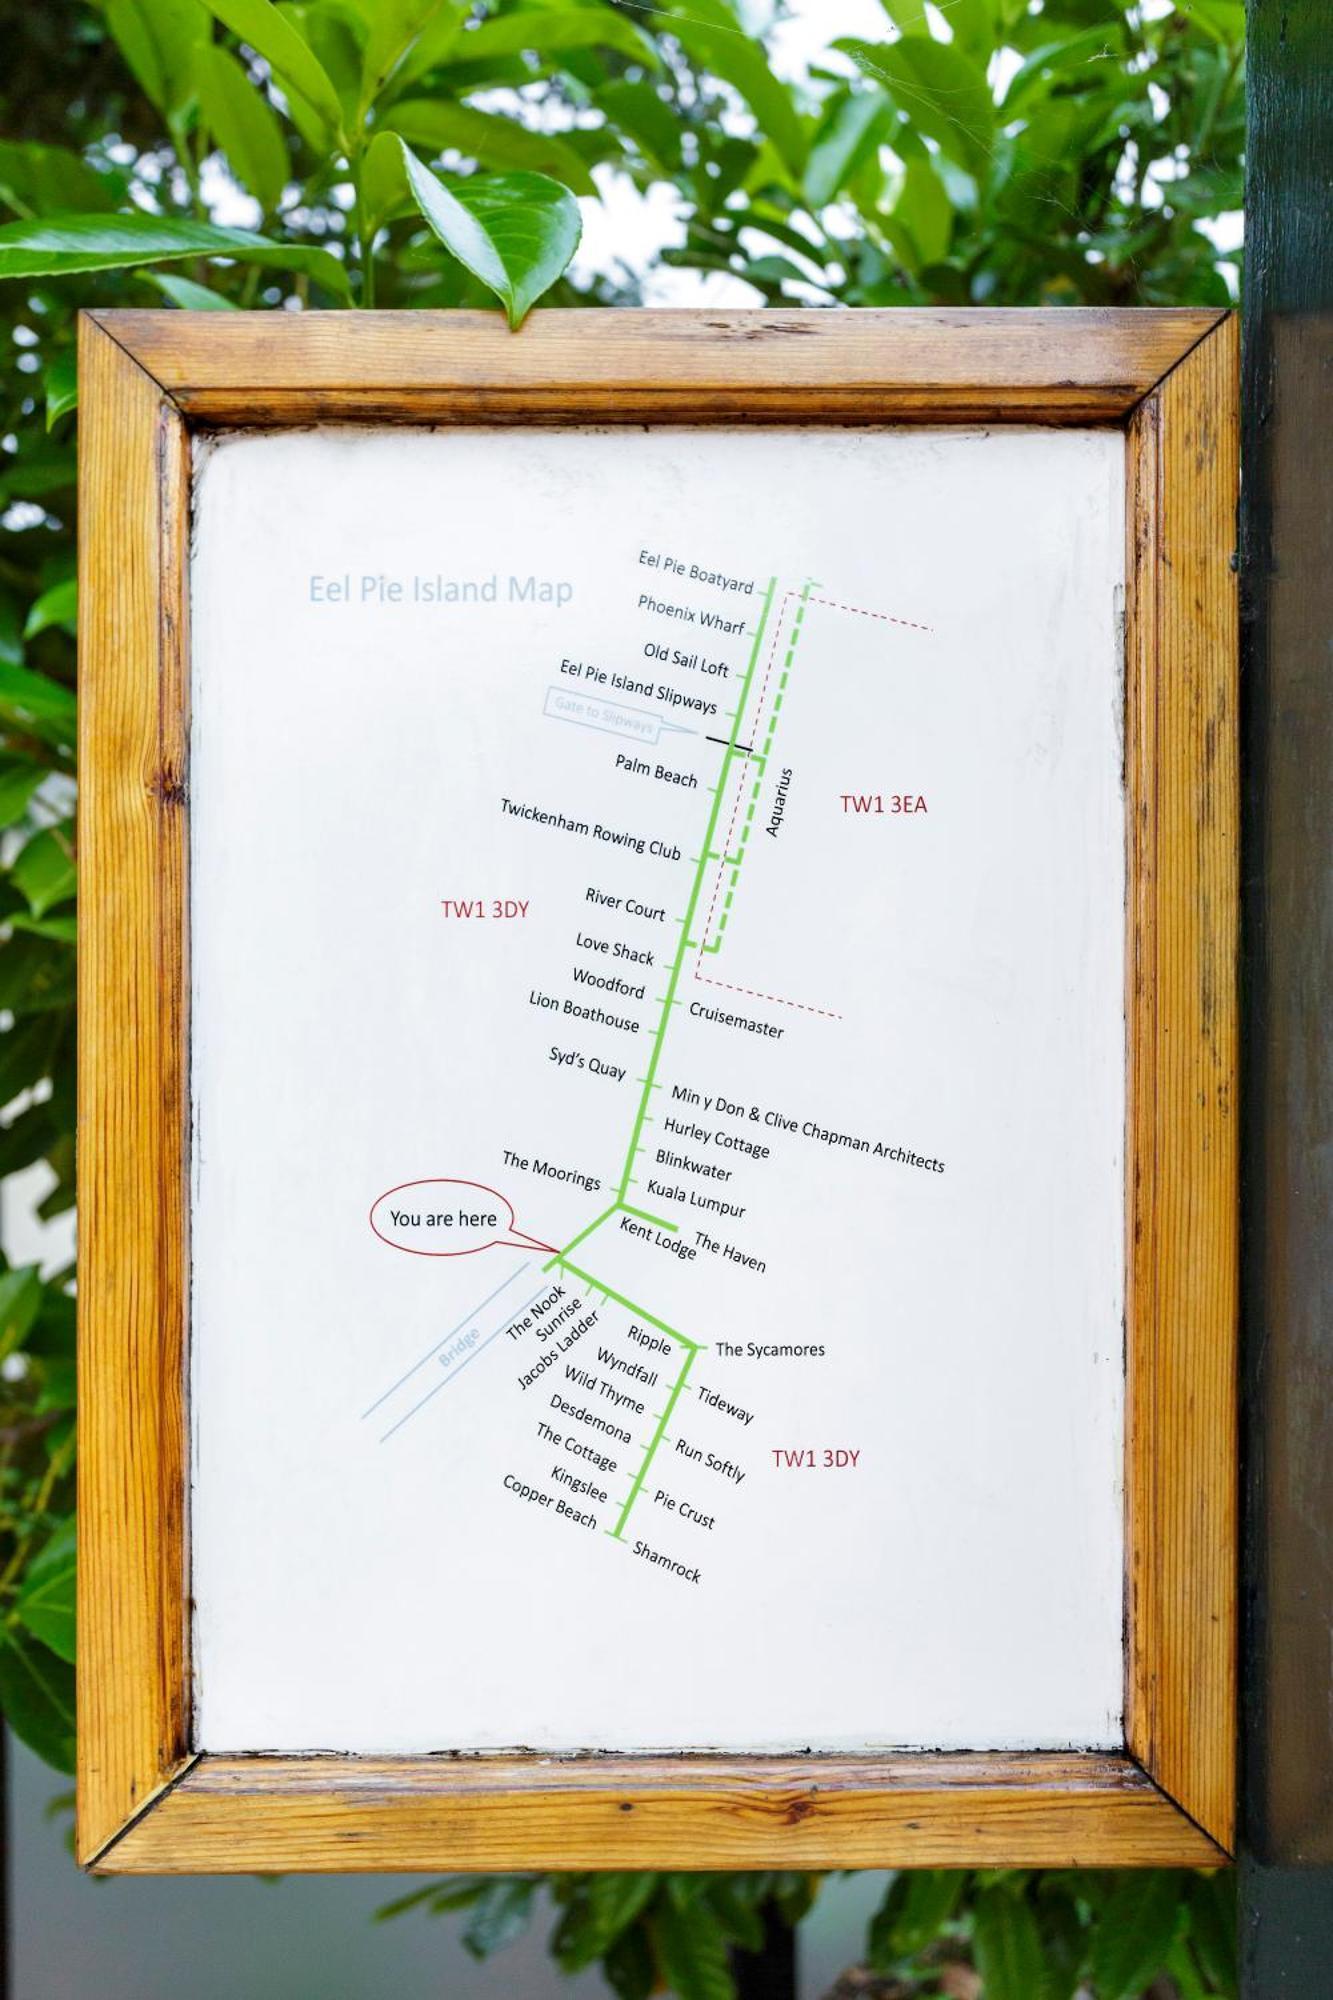 Eel Pie Island Map
Eel Pie Boatyard
Phoenix Wharf
Old Sail Loft
Eel Pie Island Slipways
Gate to Slipways
Palm Beach
Aquarius
TW1 3EA
Twickenham Rowing Club
River Court
TW1 3DY
Love Shack
Woodford
Cruisemaster
Lion Boathouse
Syd's Quay
Min y Don & Clive Chapman Architects
Hurley Cottage
Blinkwater
The Moorings
Kuala Lumpur
You are here
Kent Lodge
The Haven
Bridge
The Nook
Sunrise
Jacobs Ladder
Ripple
The Sycamores
Wyndfall
Wild Thyme
Tideway
Desdemona
Run Softly
TW1 3DY
The Cottage
Kingslee
Pie Crust
Copper Beach
Shamrock